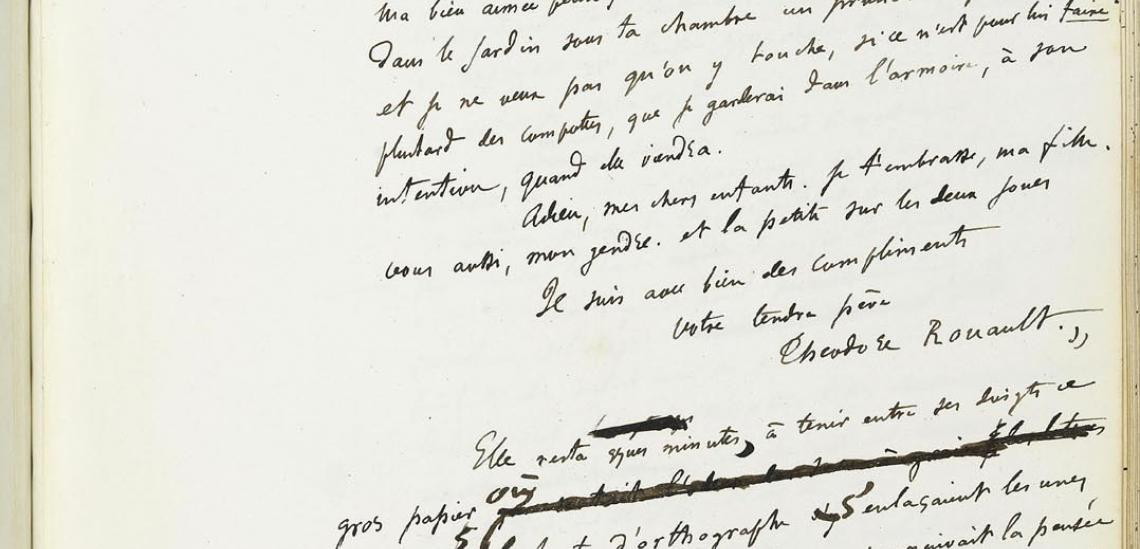 ma bien aimée
Dans le jardin sous ta chambre un
et je ne veux pas qu'on y touche, si ce n'est pour lui faire
plustard des compottes, que je garderai dans l'armoire, à son
intention, quand elle viendra.
Adieu, mes chers enfants. je t'embrasse, ma fille.
vous aussi, mon gendre. et la petite sur les deux joues
Je suis avec bien des compliments
votre tendre père
Théodore Rouault. »
Elle resta qques minutes, à tenir entre ses doigts ce
gros papier où
d'orthographe s'enlaçaient les unes
la pensée